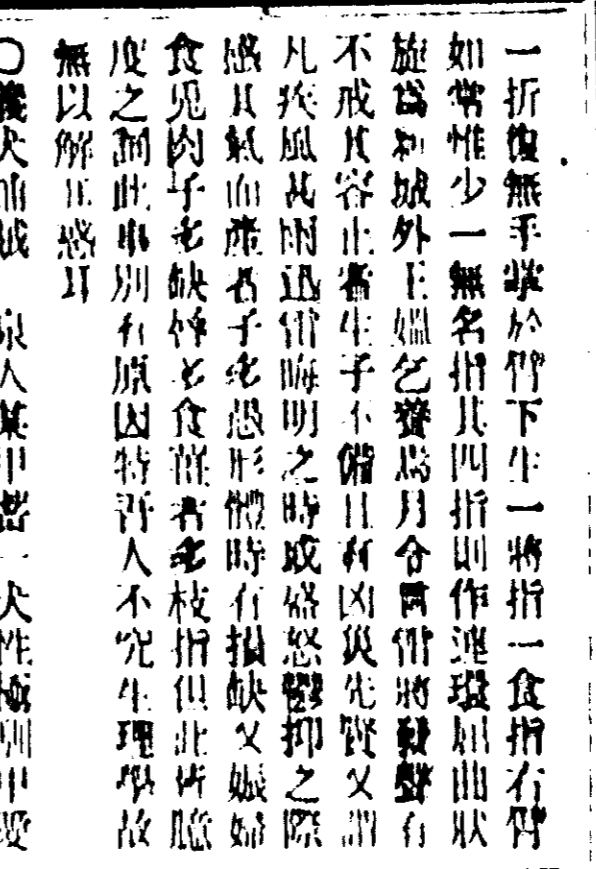 一折復無手掌於臂下生一將指一食指右臂
如常惟少一無名指其四指則作連環如曲狀
旋爲利城外王媼乞養焉月令曰雷將發聲有
不戒其容止者生子不備且有凶災先賢又謂
凡疾風甚雨迅雷晦明之時或盛怒鬱抑之際
感其氣血產者子恐形體時有損缺又娠婦
食兔肉子缺唇食薑者枝指但此皆臆
度之詞此事別有原因特吾人不究生理學故
無以解惑耳
犬賊 泉人某甲畜一犬性極馴甲愛